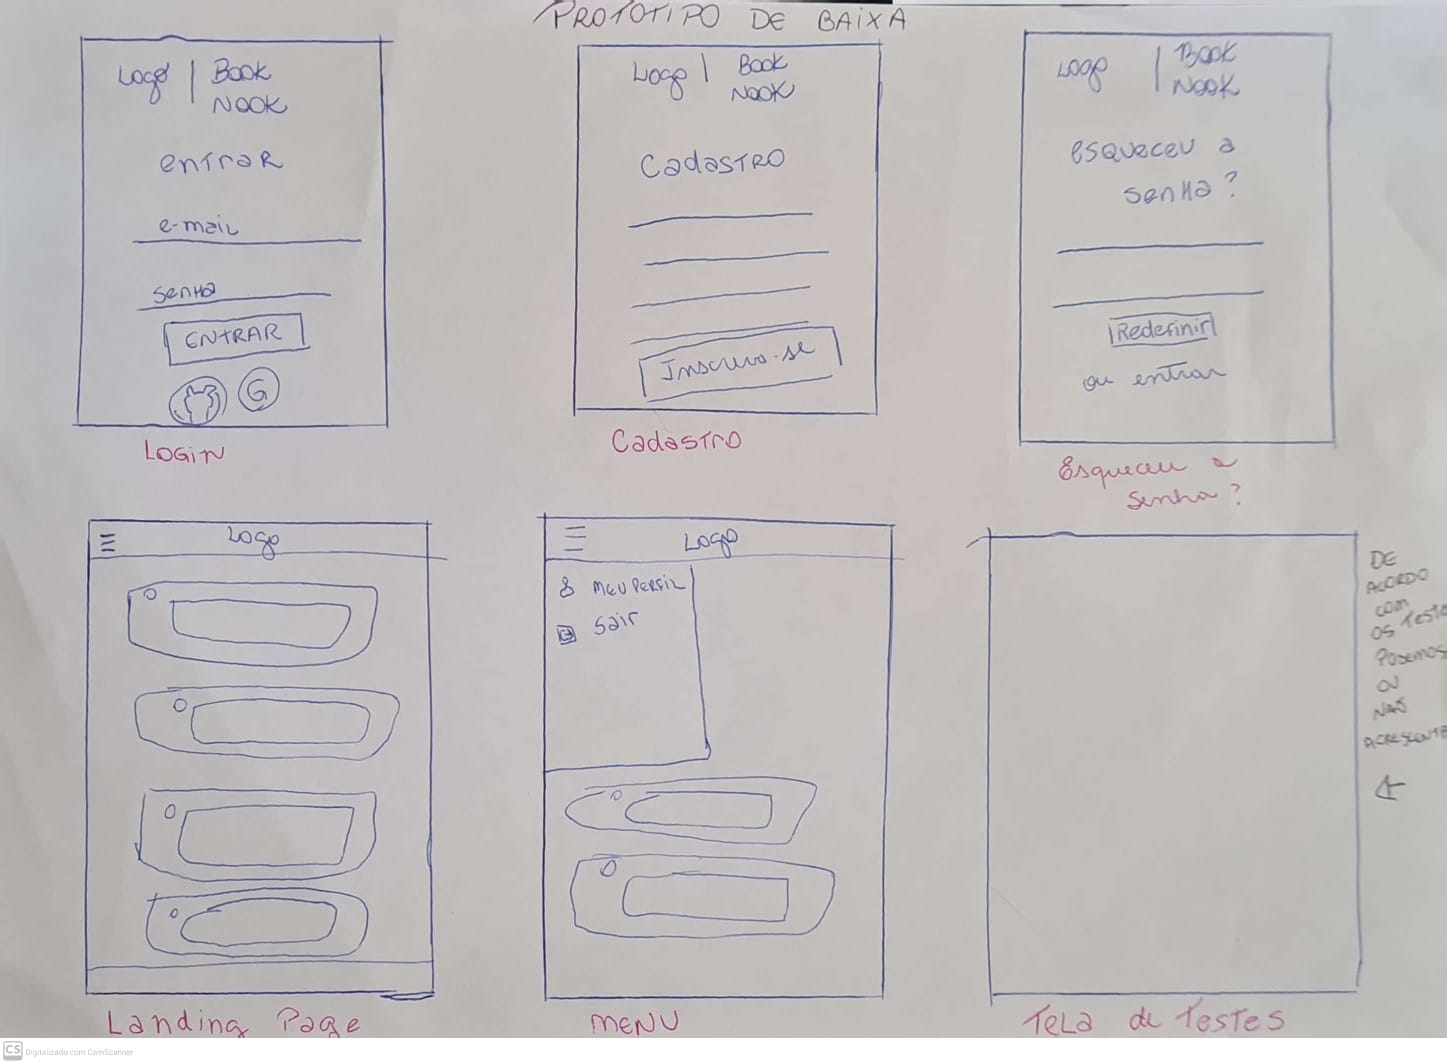 PROTOTIPO DE BAIXA
Logo | Book
Nook
entrar
e-mail
senha
ENTRAR
G
LOGIN
Logo | Book
Nook
Cadastro
Inscreva-se
Cadastro
Logo | Book
Nook
esqueceu a
senha?
Redefinir
ou entrar
Esqueceu a
senha?
Logo
Landing Page
Logo
MEU PERFIL
Sair
MENU
DE
ACORDO
COM
OS TESTE
PODEMOS
OU
NAŌ
Tela de Testes
CS Digitalizado com CamScanner